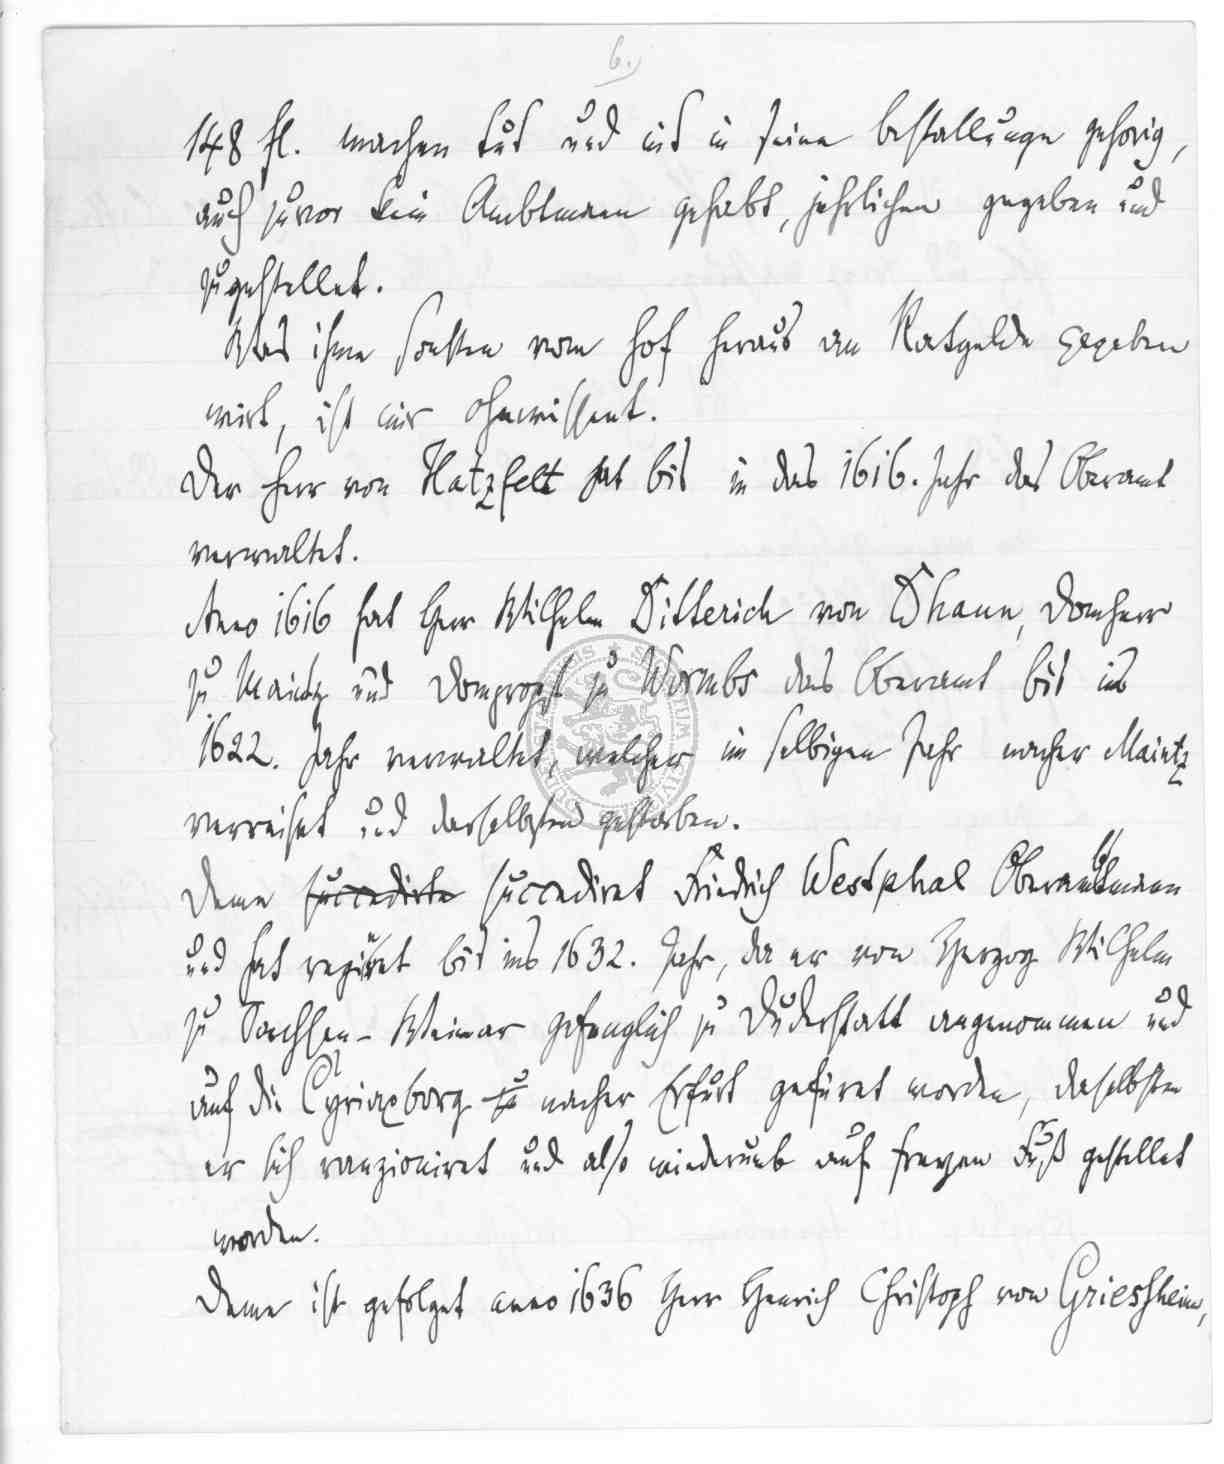 6.
148 fl. machen tut und nit in seine bestallunge gehorig,
auch zuvor kein Ambtmann gehabt, jehrlichen gegeben und
zugestellet.
Was ihme sonsten vom hof heraus an Ratgelde gegeben
wirt, ist mir ohnwissent.
Der Herr von Hatzfelt hat bis in das 1616. Jahr das Oberamt
verwaltet.
Anno 1616 hat Herr Wilhelm Ditterich von Dhaun, Domherr
zu Maintz und Dompropst zu Wormbs das Oberamt bis ins
1622. Jahr verwaltet, welcher im selbigen Jahr nacher Maintz
verreiset und darselbsten gestorben.
Deme succedirte succediret Friedrich Westphal Oberambtmann
und hat regiret bis ins 1632. Jahr, da er von Herzog Wilhelm
zu Sachsen-Weimar gefenglich zu Duderstatt angenommen und
auf die Cyriaxborg zu nacher Erfurt gefüret worden, daselbsten
er sich ranzioniret und also wiederumb auf freyen Fuß gestellet
worden.
Deme ist gefolget anno 1636 Herr Henrich Christoph von Griessheim,